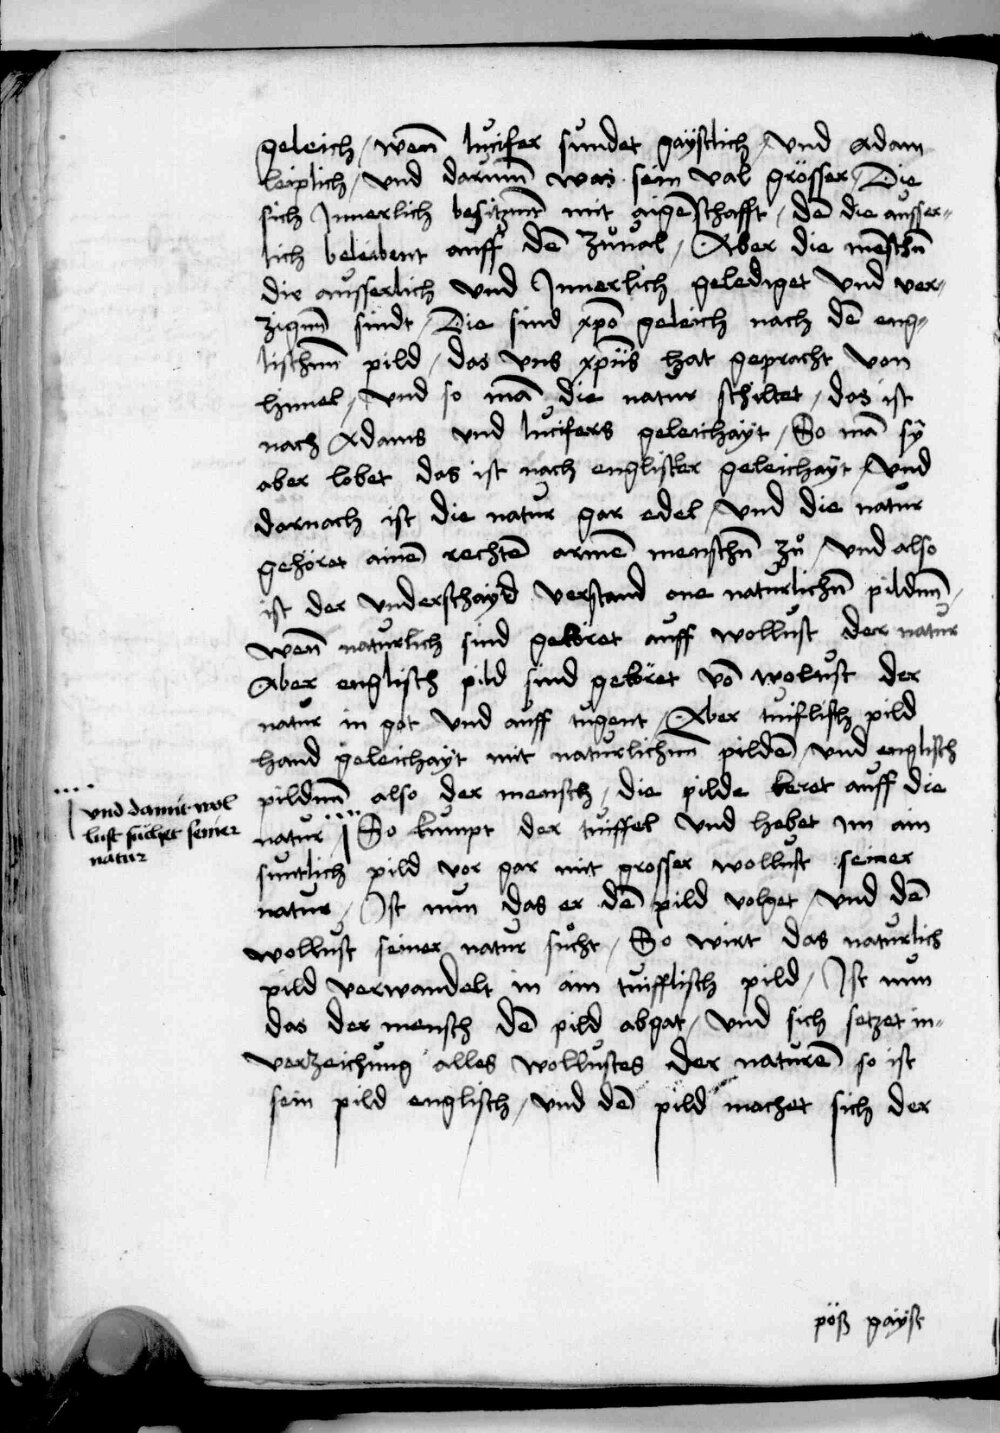 geleich / wen̄ lucifer sundet gaÿstlich / vnd adam
leiplich / vnd darumm̄ was sein val grösser / Die
sich Innerlich besitzent mit aigēschafft / dē die ausser⸗
lich beleibent auff dē zůual / Aber die mēschn̄
die ausserlich vnd Innerlich gelediget vnd ver⸗
zignn̄ sindt / Die sind xpō geleich nach dē eng⸗
lischnn̄ pild / das vns xpūs hat gepracht von
himel / vnd so mā die natur schiltet / das ist
nach Adams vnd lucifers geleichaÿt / So mā sÿ
aber lobet das ist nach englischer geleichaÿt / vnd
darnach ist die natur gar edel / vnd die natur
gehöret ainē rechtē armē menschn̄ zů / vnd also
ist der vnderschaÿd verstand one naturlichn̄ pildnn̄ /
wen̄ naturlich sind geköret auff wollust der natur
Aber englisch pild sind geköret vō wollust der
natur in got vnd auff tugent / Aber tuiflisch pild
hand geleichaÿt mit naturlichnn̄ pildē / vnd englisch
pildnn̄ also der mensch / die pilde keret auff die
natur / So kumpt der tuiffel vnd hebet im ain
suntlich pild vor gar mit grosser wollust seiner
natur / Ist nun das er dē pild volget / vnd dē
wollust seiner natur sůcht / So wirt das naturlich
pild verwandelt in ain tuifflisch pild / Ist nun
das der mensch dē pild abgat / vnd sich setzet in⸗
verzeichung alles wollustes der naturē so ist
sein pild englisch / vnd dē pild machet sich der
vnd damit wol
lust suchet seiner
natur
pöß gaÿst